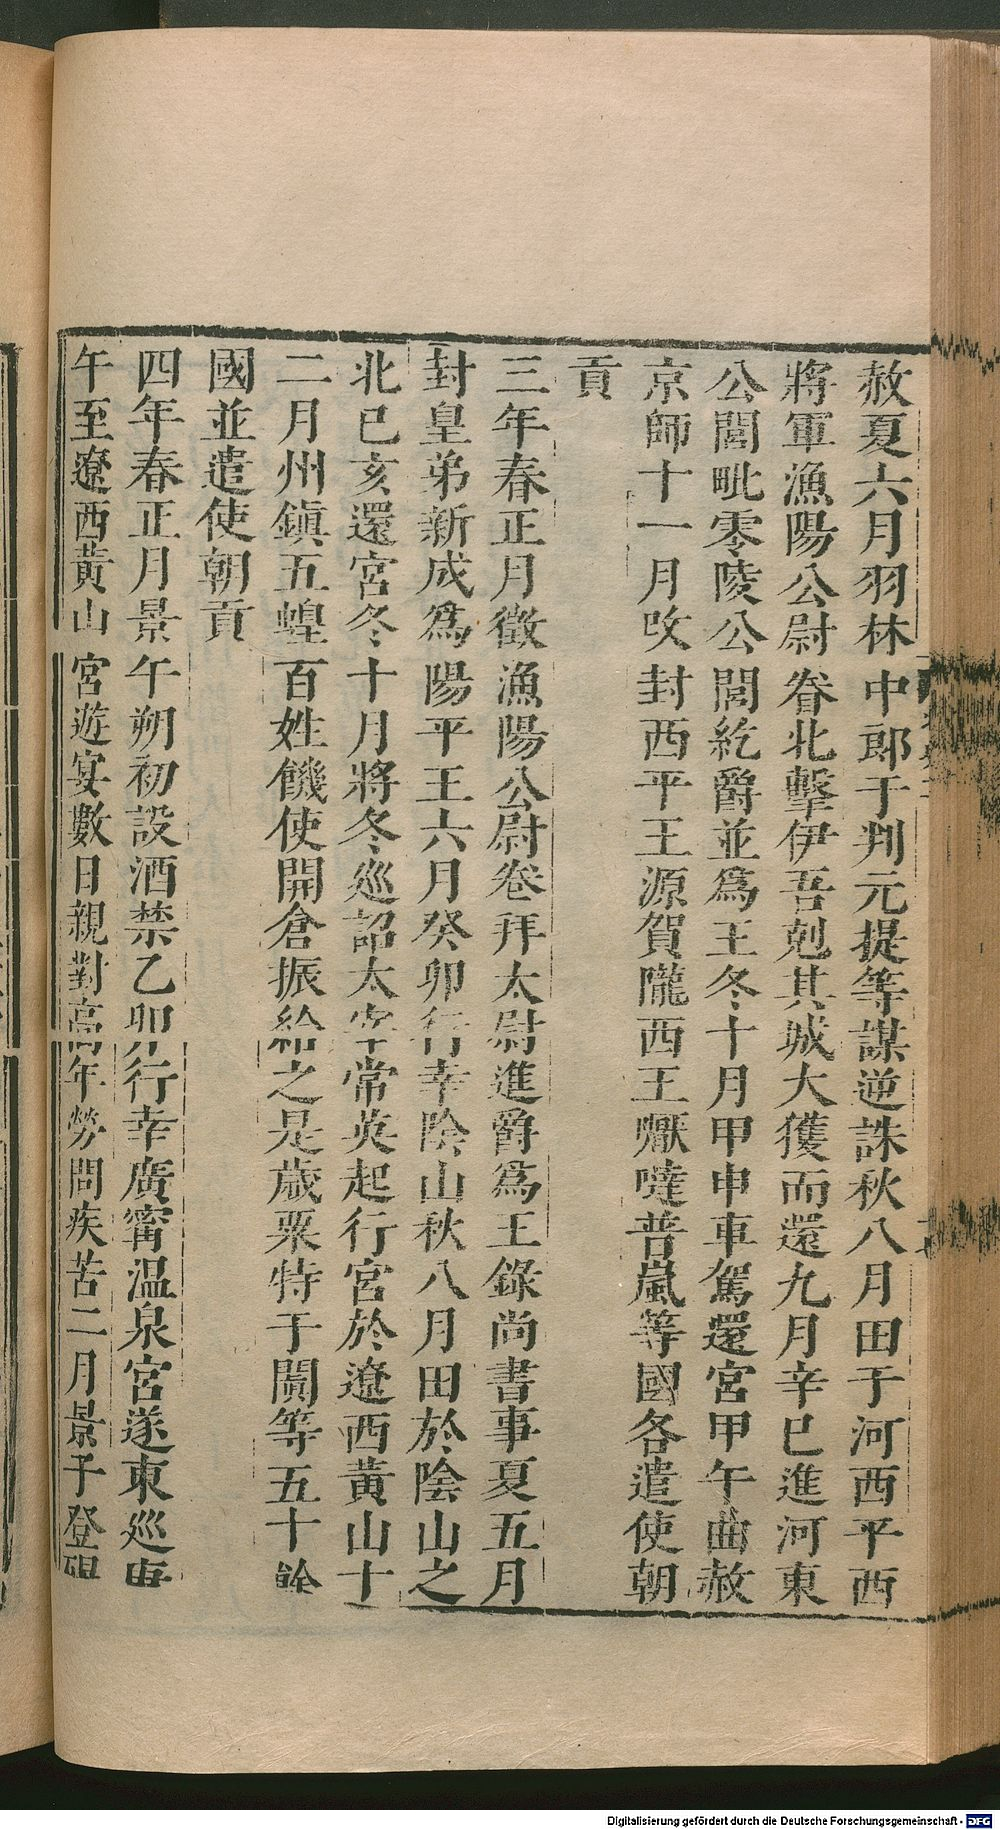 赦夏六月羽林中郎于判元提等謀逆誅秋八月田于河西平西
將軍漁陽公尉眷北擊伊吾剋其城大獲而還九月辛巳進河東
公閭毗零陵公閭紇爵並爲王冬十月甲申車駕還宮甲午曲赦
京師十一月改封西平王源賀隴西王嚈噠普嵐等國各遣使朝
貢
三年春正月徵漁陽公尉卷拜太尉進爵爲王錄尚書事夏五月
封皇弟新成爲陽平王六月癸卯行幸陰山秋八月田於陰山之
北巳亥還宮冬十月將冬巡詔太宰常英起行宮於遼西黃山十
二月州鎭五蝗百姓饑使開倉振給之是歲粟特于闐等五十餘
國並遣使朝貢
四年春正月景午朔初設酒禁乙卯行幸廣甯温泉宮遂東巡庚
午至遼西黃山宮遊宴數日親對高年勞問疾苦二月景子登碣
Digitalisierung gefördert durch die Deutsche Forschungsgemeinschaft - DFG